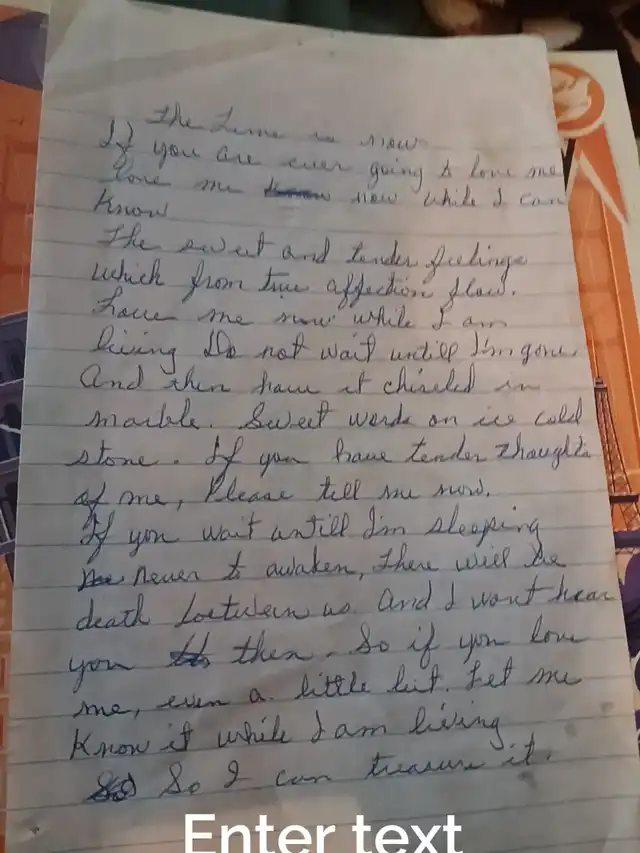 The Time is now
If you are ever going to love me
love me now while I can
Know
The sweet and tender feelings
which from true affection flow.
Love me now while I am
living Do not wait untill I'm gone.
And then have it chiseled in
marble. Sweet words on ice cold
stone. If you have tender thoughts
of me, Please tell me now.
If you wait untill I'm sleeping
never to awaken, there will be
death between us And I wont hear
you then. So if you love
me, even a little bit. Let me
Know it while I am living
So I can treasure it.
Enter text